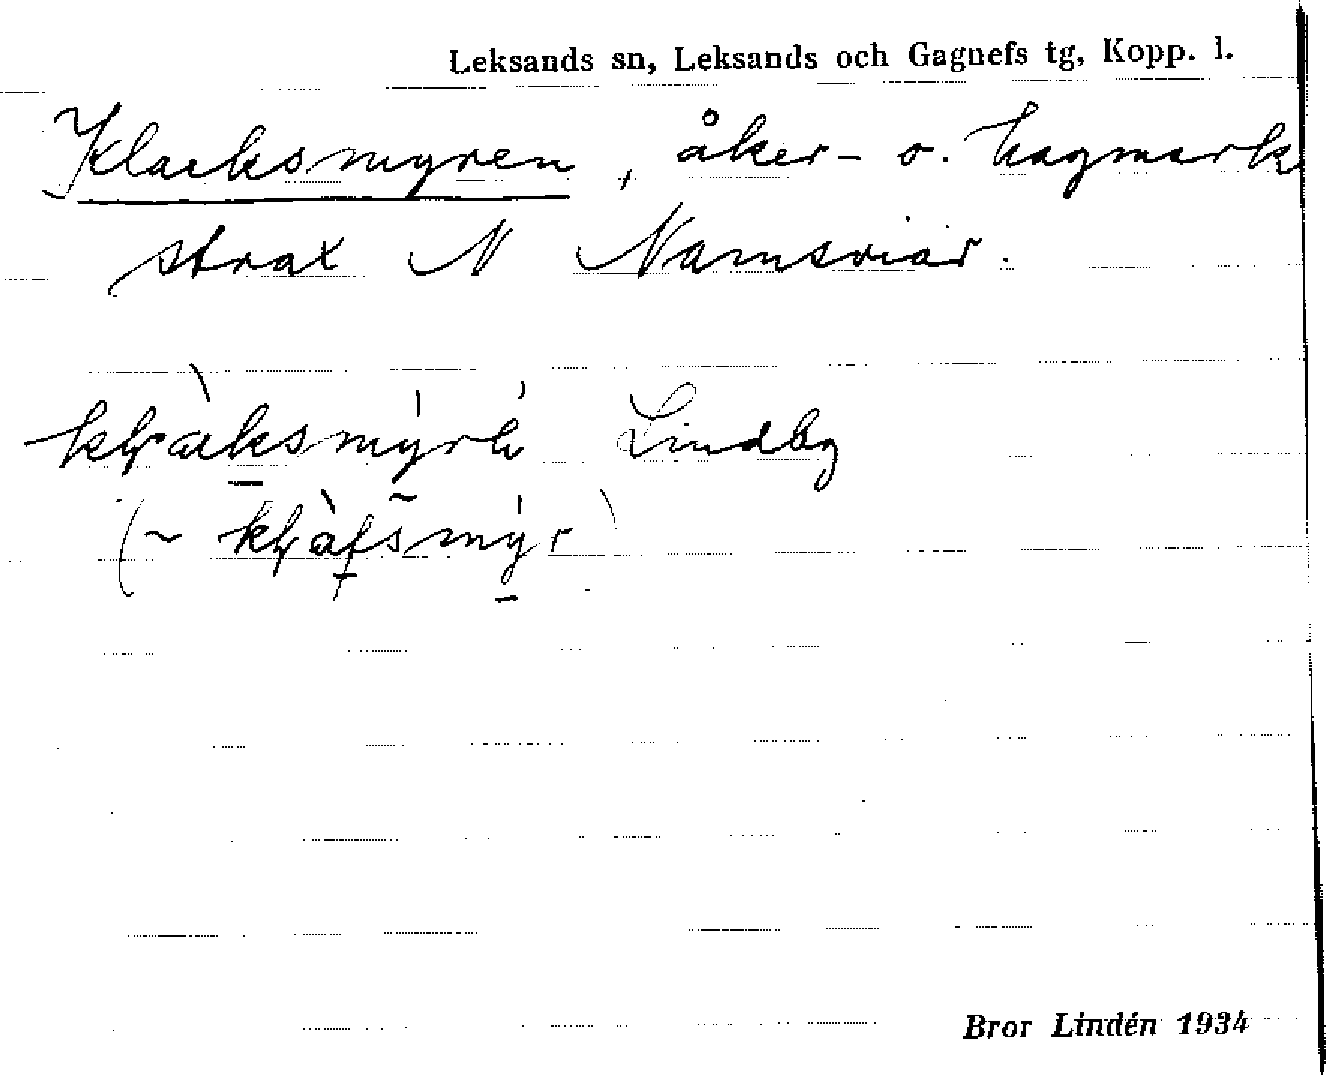 Leksands sn, Leksands och Gagnefs tg, Kopp. l.
Klacksmyren, åker- o. hagmark
strax N Namsviar.
Lindby
Bror Lindén 1934